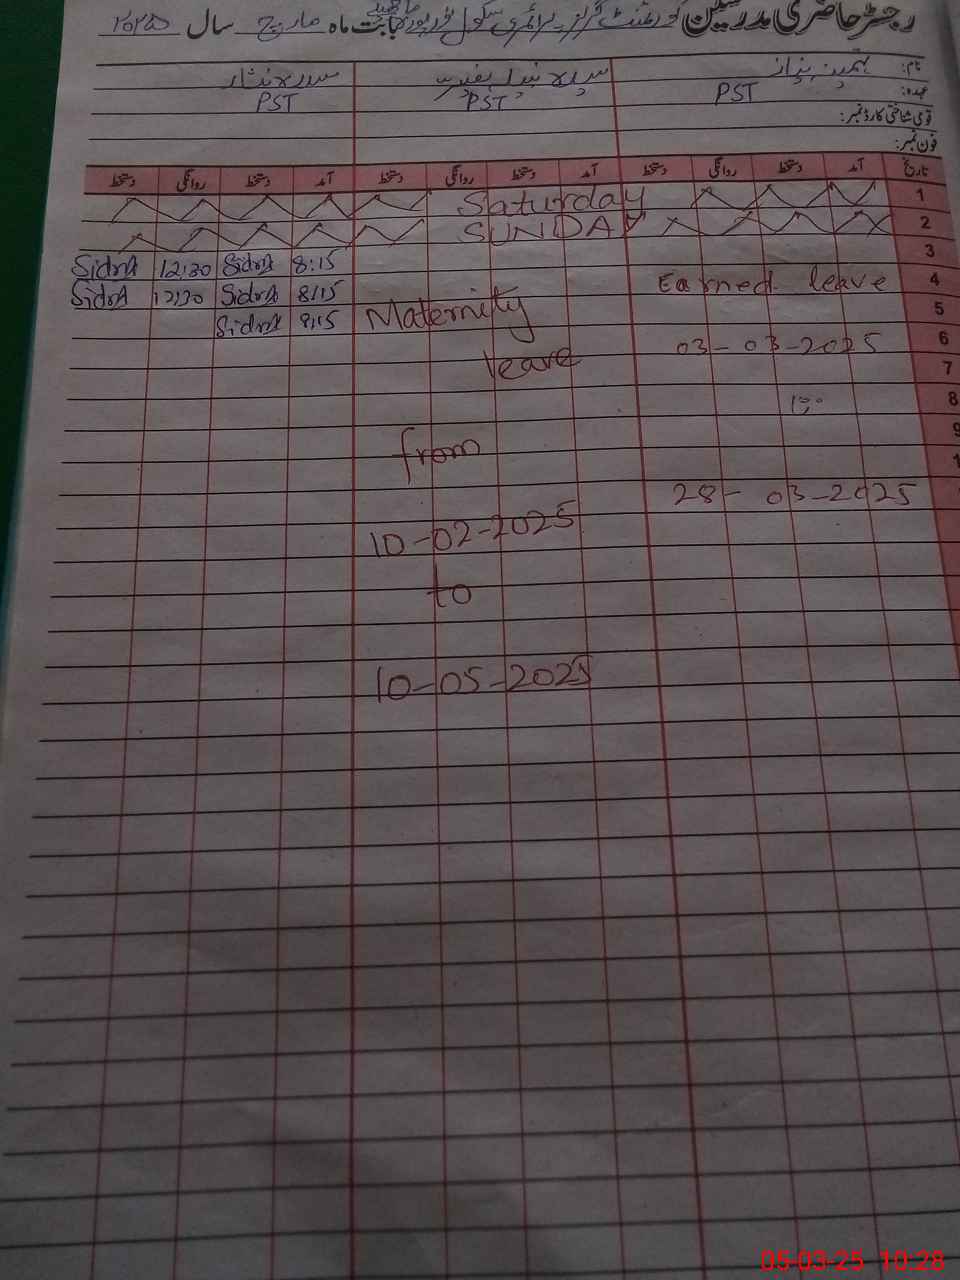 رجسٹر حاضری مدرسین گورنمنٹ گرلز پرائمری سکول بابت ماہ مارچ سال ۲۰۲۵
نام: سدرہ نثار
عہدہ: PST PST PST
قومی شناختی کارڈ نمبر:
فون نمبر:
تاریخ آمد دستخط روانگی دستخط آمد دستخط روانگی دستخط آمد دستخط روانگی دستخط
1 Saturday
2 SUNDAY
3 8:15 Sidra 12:30 Sidra
4 Earned leave 8:15 Sidra 12:30 Sidra
5 Maternity 8:15 Sidra
6 03-03-2025 leave
7
8
9
from
28-03-2025
10-02-2025
to
10-05-2025
05-03-25 10:28